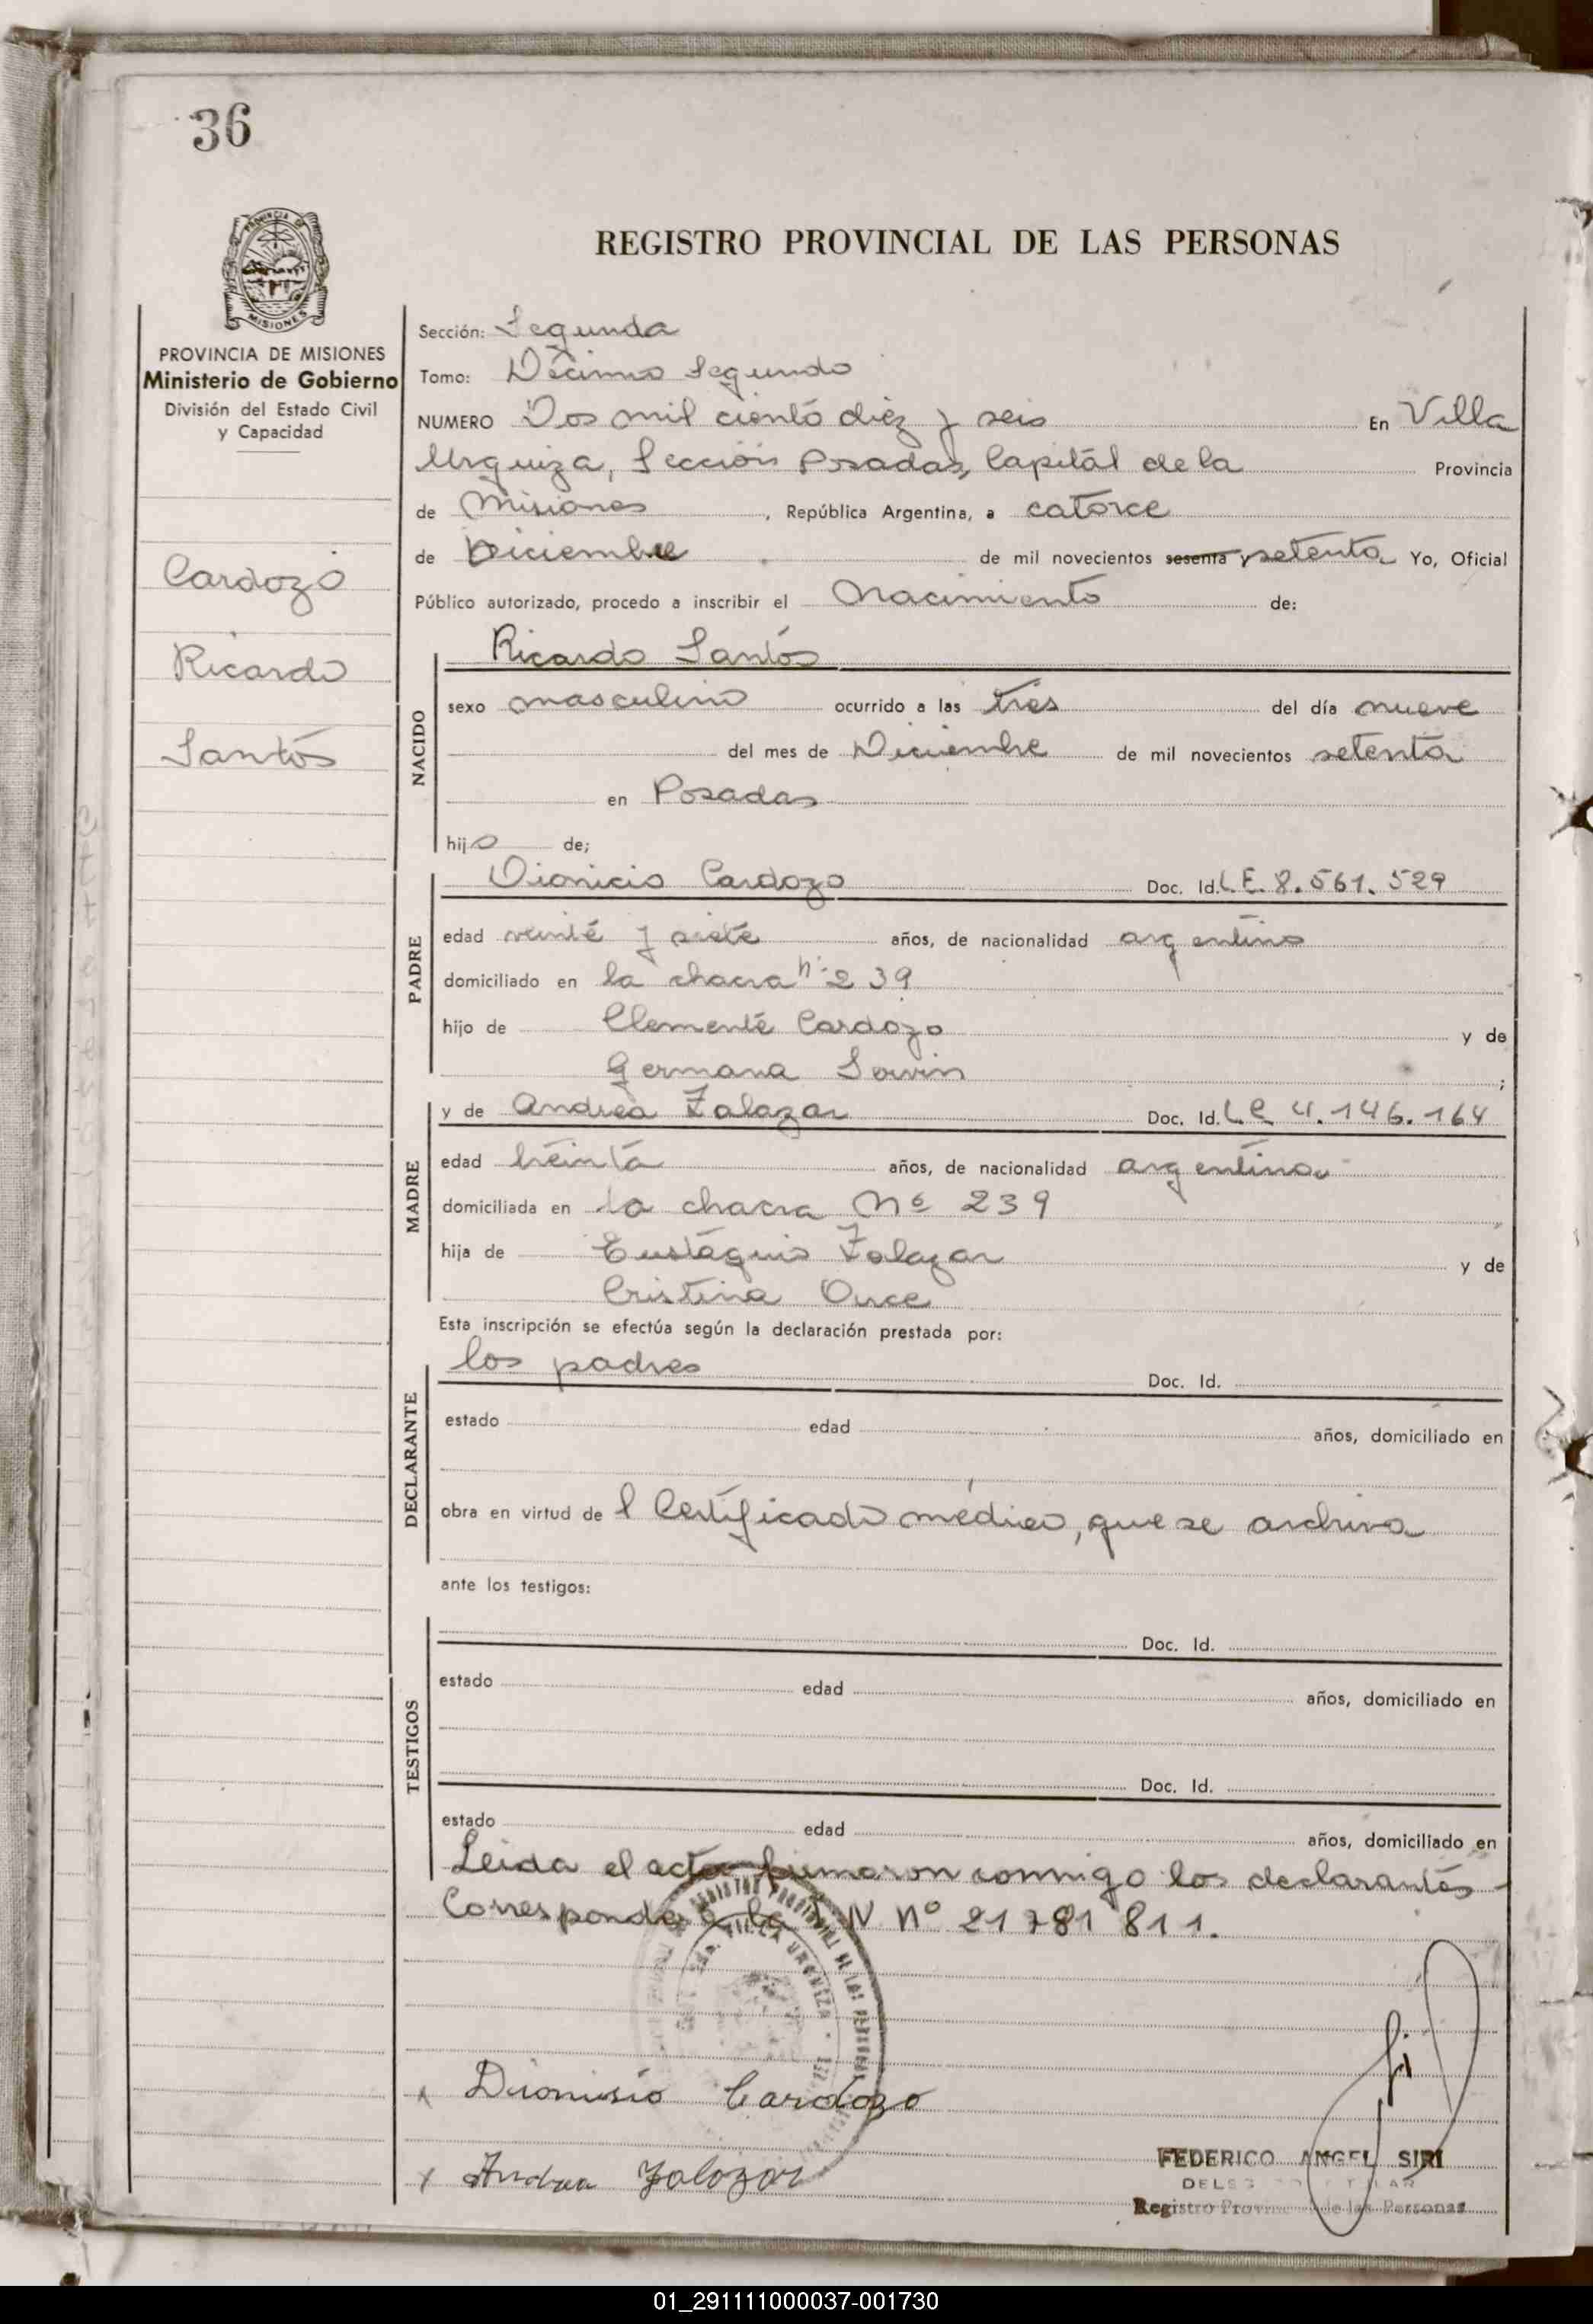 36
PROVINCIA DE
MISIONES
REGISTRO PROVINCIAL DE LAS PERSONAS
PROVINCIA DE MISIONES
Ministerio de Gobierno
División del Estado Civil
y Capacidad
Cardozo
Ricardo
Santos
Sección: Segunda
Tomo: Décimo Segundo
NUMERO Dos mil ciento diez y seis En Villa
Urquiza, Sección Posadas, Capital de la Provincia
de Misiones, República Argentina, a catorce
de Diciembre de mil novecientos sesenta y setenta Yo, Oficial
Público autorizado, procedo a inscribir el Nacimiento de:
NACIDO
Ricardo Santos
sexo masculino ocurrido a las tres del día nueve
del mes de Diciembre de mil novecientos setenta
en Posadas
hijo de;
PADRE
Dionicio Cardozo Doc. Id. L E. 8.561.529
edad veinte y siete años, de nacionalidad argentino
domiciliado en la chacra nº 239
hijo de Clemente Cardozo y de
Germana ;
MADRE
y de Andrea Zalazar Doc. Id. L C 4.146.164
edad treinta años, de nacionalidad argentina
domiciliada en la chacra Nº 239
hija de Eustaquio Zalazar y de
Cristina
Esta inscripción se efectúa según la declaración prestada por:
DECLARANTE
los padres Doc. Id.
estado edad años, domiciliado en
obra en virtud de l Certificado médico, que se archiva
ante los testigos:
TESTIGOS
Doc. Id.
estado edad años, domiciliado en
Doc. Id.
estado edad años, domiciliado en
Leida el acta firmaron conmigo los declarantes -
Corresponde a la N nº 21 781 811.
VILLA URQUIZA
Dionisio Cardozo
Andrea Zalazar
FEDERICO ANGEL SIRI
Registro de las Personas
01_291111000037-001730